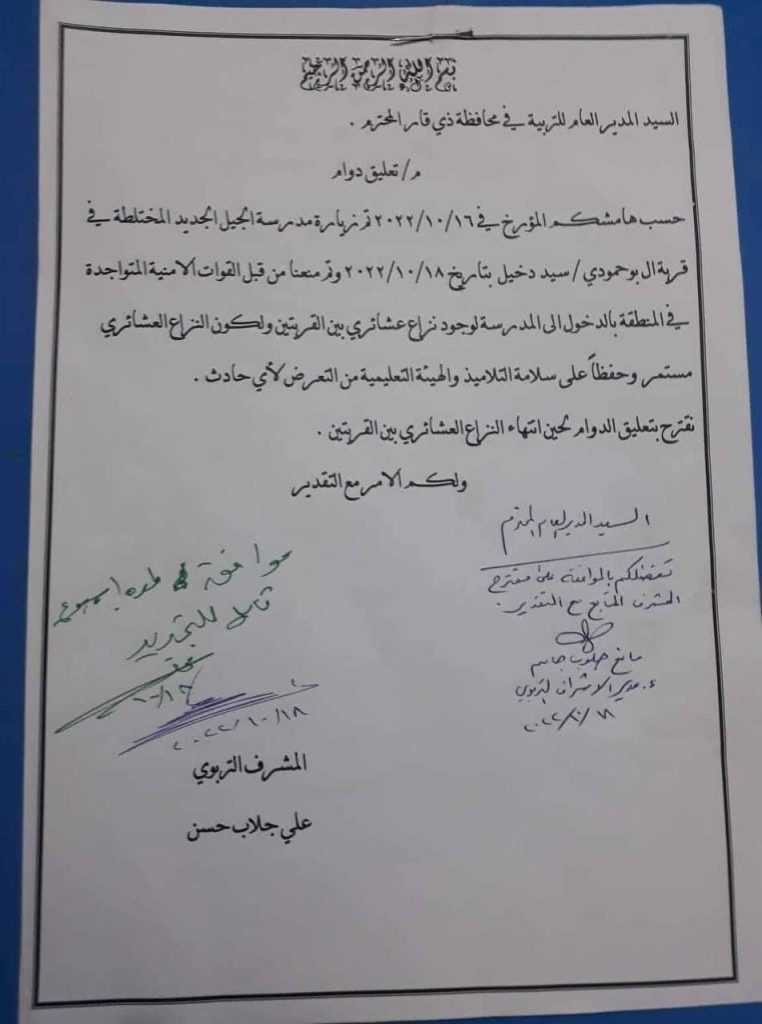 بسم الله الرحمن الرحيم
السيد المدير العام للتربية في محافظة ذي قار المحترم .
م/ تعليق دوام
حسب هامشكم المؤرخ في ٢٠٢٢/١٠/١٦ تم زيارة مدرسة الجيل الجديد المختلطة في
قرية ال بوحمودي / سيد دخيل بتاريخ ٢٠٢٢/١٠/١٨ وتم منعنا من قبل القوات الامنية المتواجدة
في المنطقة بالدخول الى المدرسة لوجود نزاع عشائري بين القريتين ولكون النزاع العشائري
مستمر وحفظاً على سلامة التلاميذ والهيئة التعليمية من التعرض لأي حادث .
نقترح بتعليق الدوام لحين انتهاء النزاع العشائري بين القريتين .
ولكم الامر مع التقدير
السيد المدير العام المحترم
تفضلكم بالموافقة على مقترح
المشرف المتابع مع التقدير .
جاسم
م. مدير الاشراف التربوي
موافقة لمدة اسبوع
قابل للتجديد
٢٠٢٢/١٠/١٨
المشرف التربوي
علي جلاب حسن